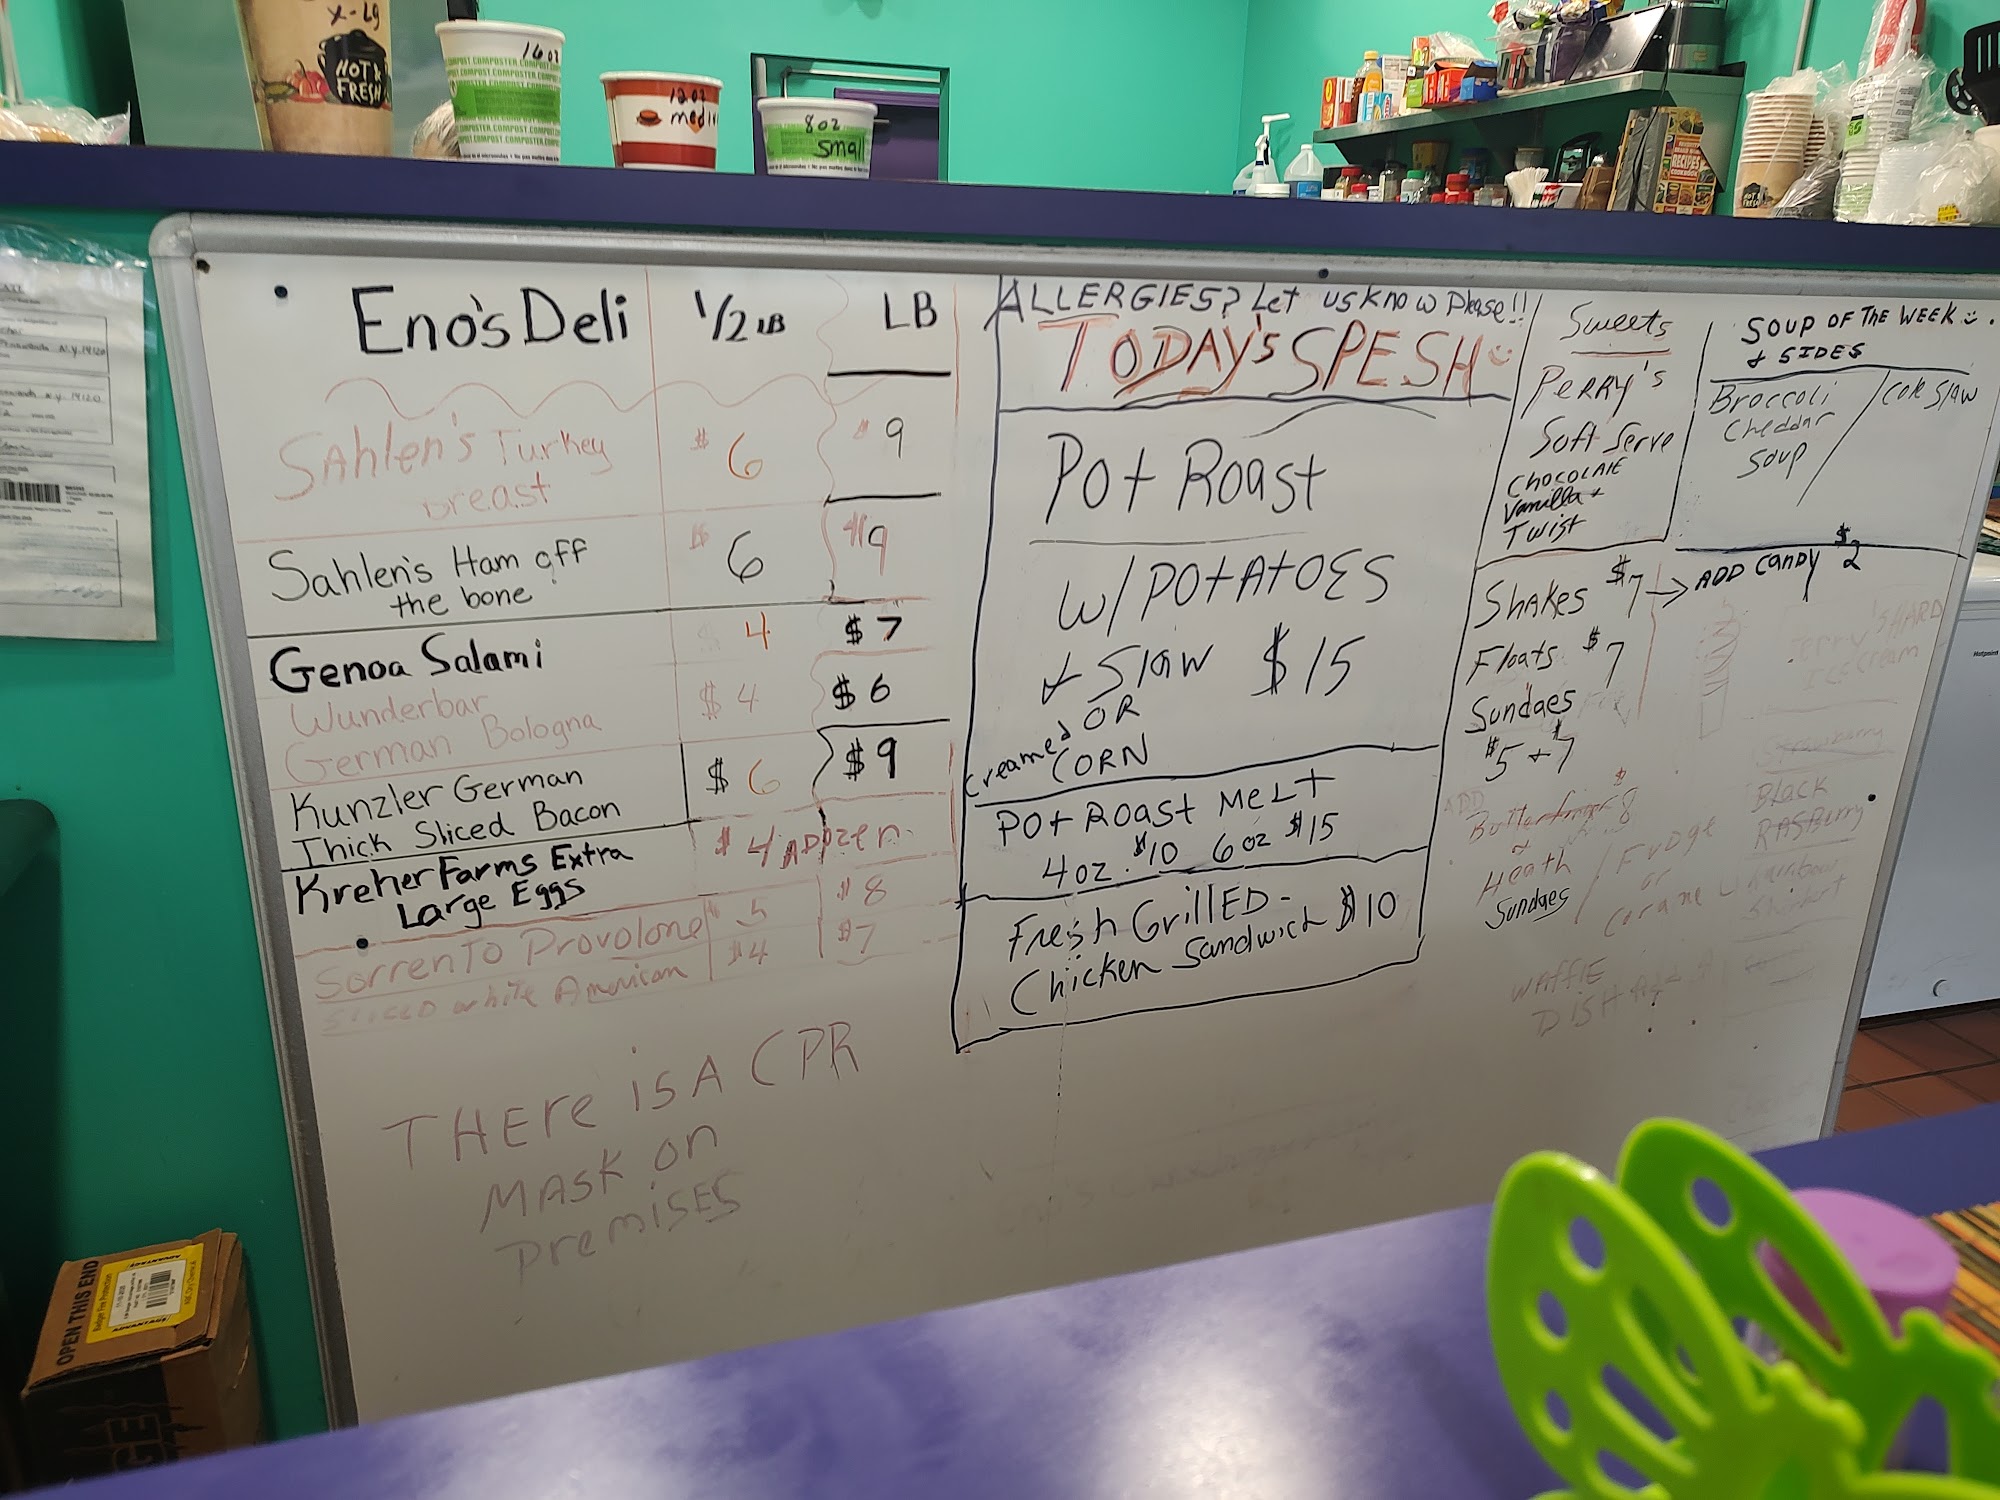 X-Lg
HOT &
FRESH
16 oz
COMPOST.COMPOSTER.COMPOST.COMPOSTER
12 oz
8 oz
small
RECIPES
HOT &
FRESH
ALLERGIES? Let us know Please!!
Eno's Deli 1/2 LB LB
Sahlen's Turkey
Breast $6 $9
Sahlen's Ham off
the bone $6 $9
Genoa Salami $4 $7
Wunderbar
German Bologna $4 $6
Kunzler German
Thick Sliced Bacon $6 $9
Kreher Farms Extra
Large Eggs $4 A Dozen
Sorrento Provolone $5 $8
Sliced white American $4 $7
THERE is A CPR
MASK on
premisES
TODAY'S SPESH
Pot Roast
W/POTATOES
+ Slaw $15
OR
Creamed
CORN
Pot Roast MELT
4oz. $10 6oz $15
Fresh GrillED-
Chicken Sandwich $10
Sweets
PERRY'S
Soft Serve
CHOCOLATE
Vanilla +
Twist
Shakes $7 → ADD Candy $2
Floats $7
Sundaes
$5 + $7
ADD
Butterfinger $8
Heath
Sundaes
Fudge
or
WAFFLE
DISH
SOUP OF THE WEEK
+ SIDES
Broccoli
Cheddar
Soup
Cole Slaw
HARD
ICE Cream
Strawberry
Black
RASBerry
OPEN THIS END
ADVANTAGE
Hotpoint